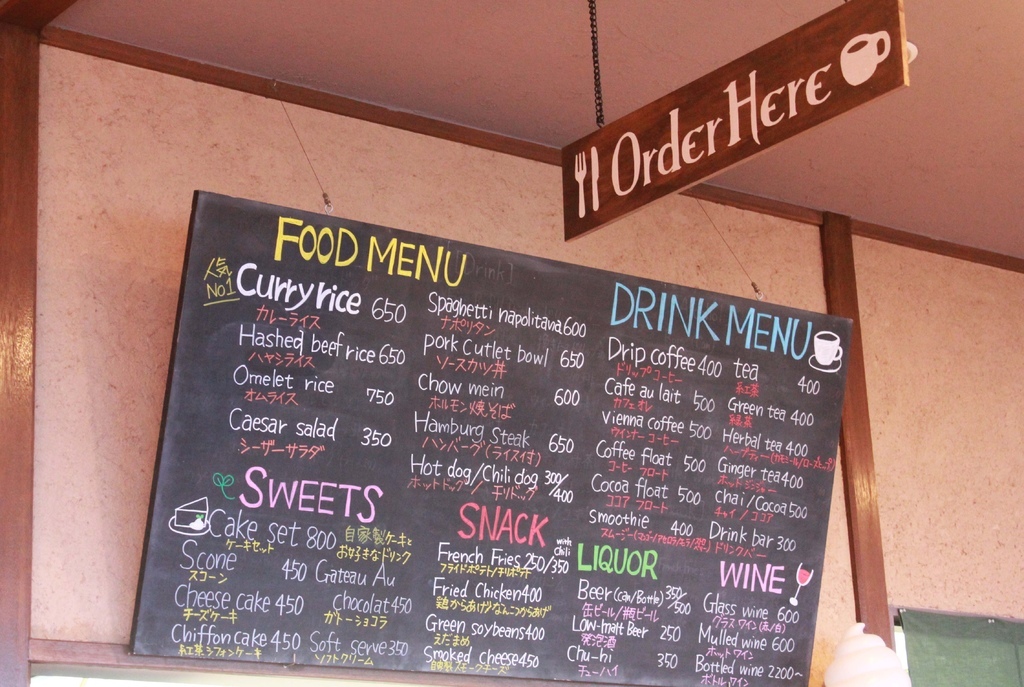 Order Here
FOOD MENU
人気
No1
Curry rice 650
カレーライス
Hashed beef rice 650
ハヤシライス
Omelet rice 750
オムライス
Caesar salad 350
シーザーサラダ
Spaghetti napolitana 600
ナポリタン
pork Cutlet bowl 650
ソースカツ丼
Chow mein 600
ホルモン焼そば
Hamburg Steak 650
ハンバーグ(ライス付)
Hot dog/Chili dog 300/400
ホットドッグ/チリドッグ
SWEETS
Cake set 800
ケーキセット
自家製ケーキと
お好きなドリンク
Scone 450
スコーン
Cheese cake 450
チーズケーキ
Chiffon cake 450
紅茶シフォンケーキ
Gateau Au
Chocolat 450
ガトーショコラ
Soft serve 350
ソフトクリーム
SNACK
French Fries 250/350 with chili
フライドポテト/チリポテト
Fried Chicken 400
鶏からあげ/なんこつからあげ
Green soybeans 400
えだまめ
Smoked cheese 450
自家製スモークチーズ
DRINK MENU
Drip coffee 400
ドリップコーヒー
Cafe au lait 500
カフェオレ
Vienna coffee 500
ウインナーコーヒー
Coffee float 500
コーヒーフロート
Cocoa float 500
ココアフロート
Smoothie 400
tea 400
紅茶
Green tea 400
緑茶
Herbal tea 400
Ginger tea 400
ホットジンジャー
chai/Cocoa 500
チャイ/ココア
Drink bar 300
ドリンクバー
LIQUOR
Beer (can/Bottle) 350/500
缶ビール/瓶ビール
Low-malt Beer 250
発泡酒
Chu-hi 350
チューハイ
WINE
Glass wine 600
グラスワイン(赤/白)
Mulled wine 600
ホットワイン
Bottled wine 2200~
ボトルワイン